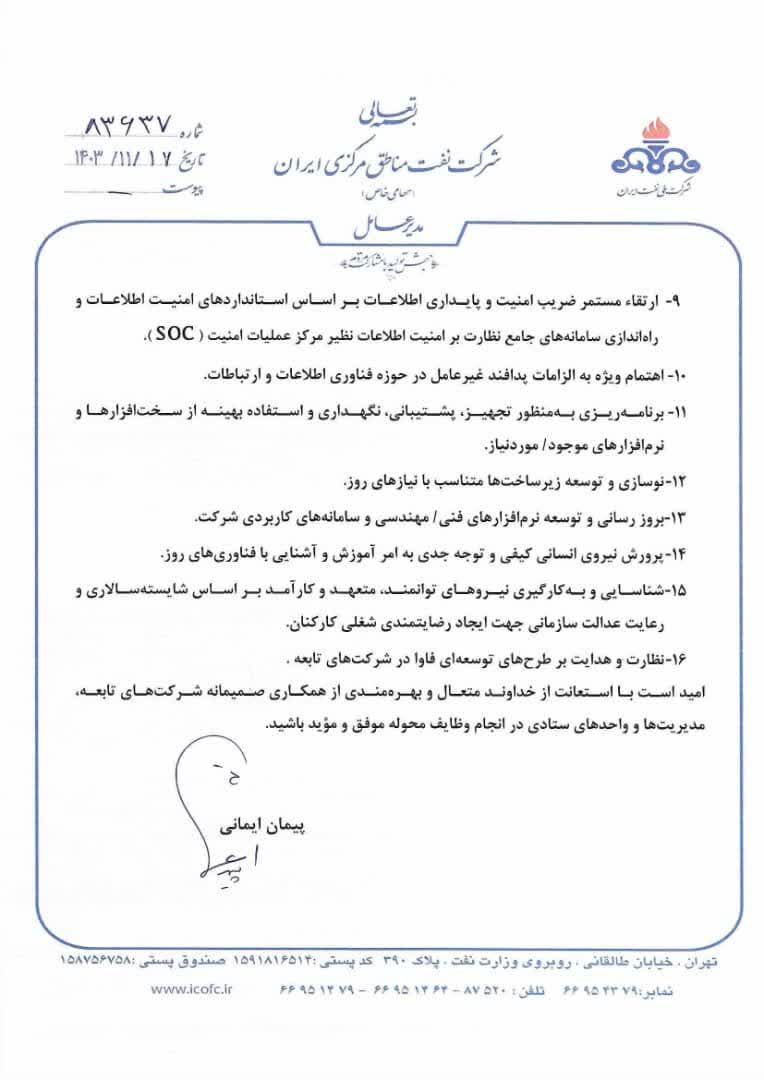 بسمه تعالی
شرکت نفت مناطق مرکزی ایران
(سهامی خاص)
مدیرعامل
«جهش تولید با مشارکت مردم»
شرکت ملی نفت ایران
شماره ۸۳۹۳۷
تاریخ ۱۴۰۳/۱۱/۱۷
پیوست —
۹- ارتقاء مستمر ضریب امنیت و پایداری اطلاعات بر اساس استانداردهای امنیت اطلاعات و
راه‌اندازی سامانه‌های جامع نظارت بر امنیت اطلاعات نظیر مرکز عملیات امنیت (SOC).
۱۰- اهتمام ویژه به الزامات پدافند غیرعامل در حوزه فناوری اطلاعات و ارتباطات.
۱۱- برنامه‌ریزی به‌منظور تجهیز، پشتیبانی، نگهداری و استفاده بهینه از سخت‌افزارها و
نرم‌افزارهای موجود/ موردنیاز.
۱۲-نوسازی و توسعه زیرساخت‌ها متناسب با نیازهای روز.
۱۳-بروز رسانی و توسعه نرم‌افزارهای فنی/ مهندسی و سامانه‌های کاربردی شرکت.
۱۴-پرورش نیروی انسانی کیفی و توجه جدی به امر آموزش و آشنایی با فناوری‌های روز.
۱۵-شناسایی و به‌کارگیری نیروهای توانمند، متعهد و کارآمد بر اساس شایسته‌سالاری و
رعایت عدالت سازمانی جهت ایجاد رضایتمندی شغلی کارکنان.
۱۶-نظارت و هدایت بر طرح‌های توسعه‌ای فاوا در شرکت‌های تابعه .
امید است با استعانت از خداوند متعال و بهره‌مندی از همکاری صمیمانه شرکت‌های تابعه،
مدیریت‌ها و واحدهای ستادی در انجام وظایف محوله موفق و مؤید باشید.
پیمان ایمانی
تهران ، خیابان طالقانی ، روبروی وزارت نفت ، پلاک ۳۹۰ کد پستی :۱۵۹۱۸۱۶۵۱۴ صندوق پستی :۱۵۸۷۵۶۷۵۸
نمابر:۷۹ ۴۳ ۹۵ ۶۶ تلفن : ۵۲۰ ۸۷ - ۶۴ ۱۴ ۹۵ ۶۶ - ۷۹ ۱۴ ۹۵ ۶۶ www.icofc.ir